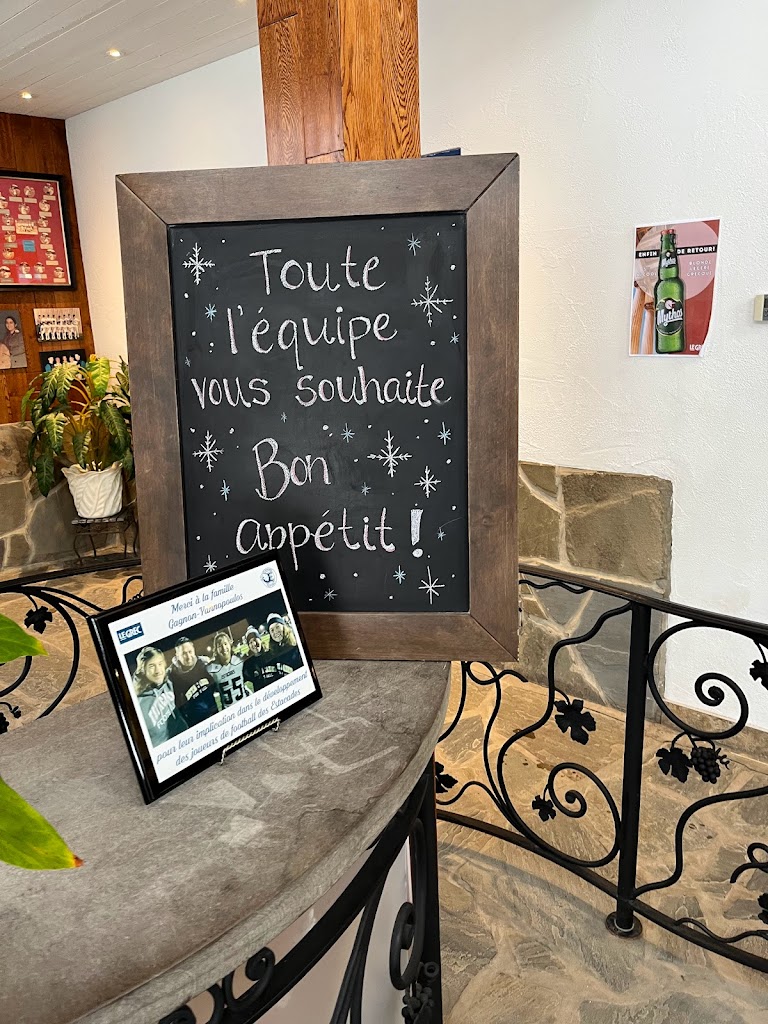 Toute
l'équipe
vous souhaite
Bon
appétit !
ENFIN DE RETOUR!
Mythos
LE GREC
Merci à la famille
Gagnon-Yannopoulos
LE GREC
55
pour leur implication dans le développement
des joueurs de football des Estacades